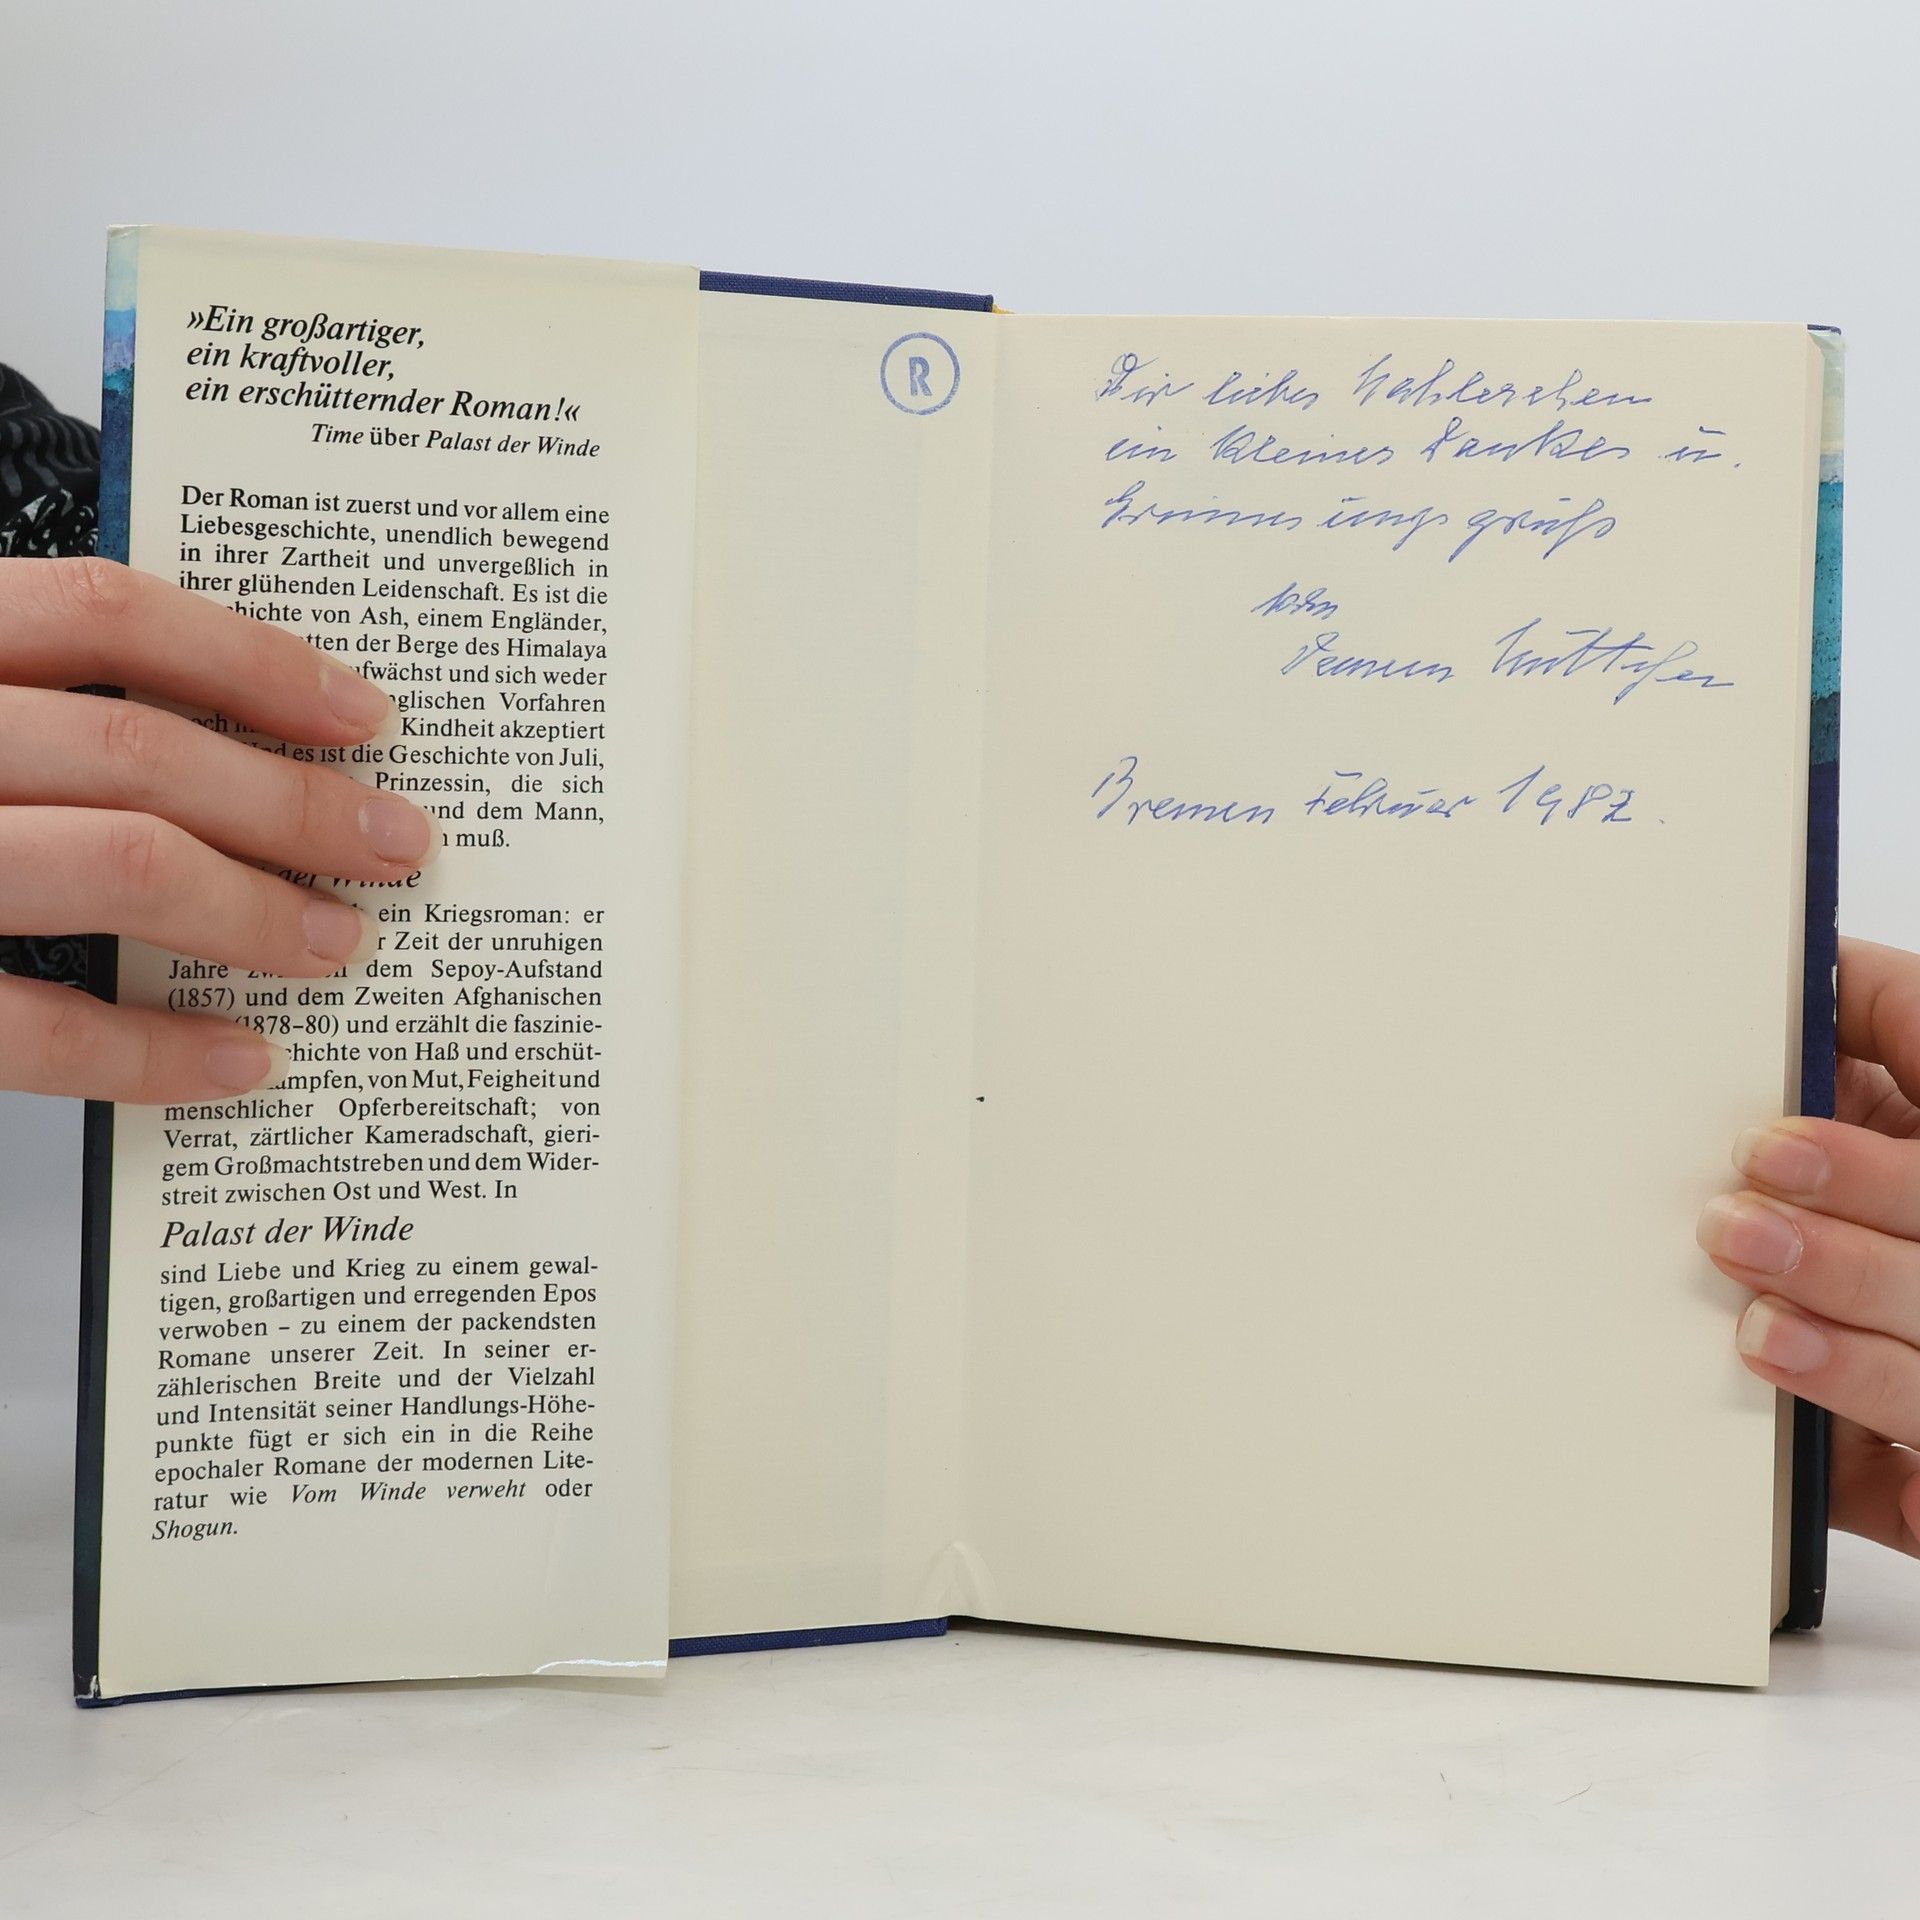 »Ein großartiger,
ein kraftvoller,
ein erschütternder Roman!«
Time über Palast der Winde
Der Roman ist zuerst und vor allem eine
Liebesgeschichte, unendlich bewegend
in ihrer Zartheit und unvergeßlich in
ihrer glühenden Leidenschaft. Es ist die
von Ash, einem Engländer,
der Berge des Himalaya
und sich weder
Vorfahren
Kindheit akzeptiert
es ist die Geschichte von Juli,
Prinzessin, die sich
und dem Mann,
muß.
der Winde
ein Kriegsroman: er
Zeit der unruhigen
Jahre dem Sepoy-Aufstand
(1857) und dem Zweiten Afghanischen
(1878–80) und erzählt die faszinie-
von Haß und erschüt-
von Mut, Feigheit und
menschlicher Opferbereitschaft; von
Verrat, zärtlicher Kameradschaft, gieri-
gem Großmachtstreben und dem Wider-
streit zwischen Ost und West. In
Palast der Winde
sind Liebe und Krieg zu einem gewal-
tigen, großartigen und erregenden Epos
verwoben – zu einem der packendsten
Romane unserer Zeit. In seiner er-
zählerischen Breite und der Vielzahl
und Intensität seiner Handlungs-Höhe-
punkte fügt er sich ein in die Reihe
epochaler Romane der modernen Lite-
ratur wie Vom Winde verweht oder
Shogun.
R
Dir liebes
ein kleines Dankes u.
Erinnerungsgruß
von
Bremen Februar 1982.